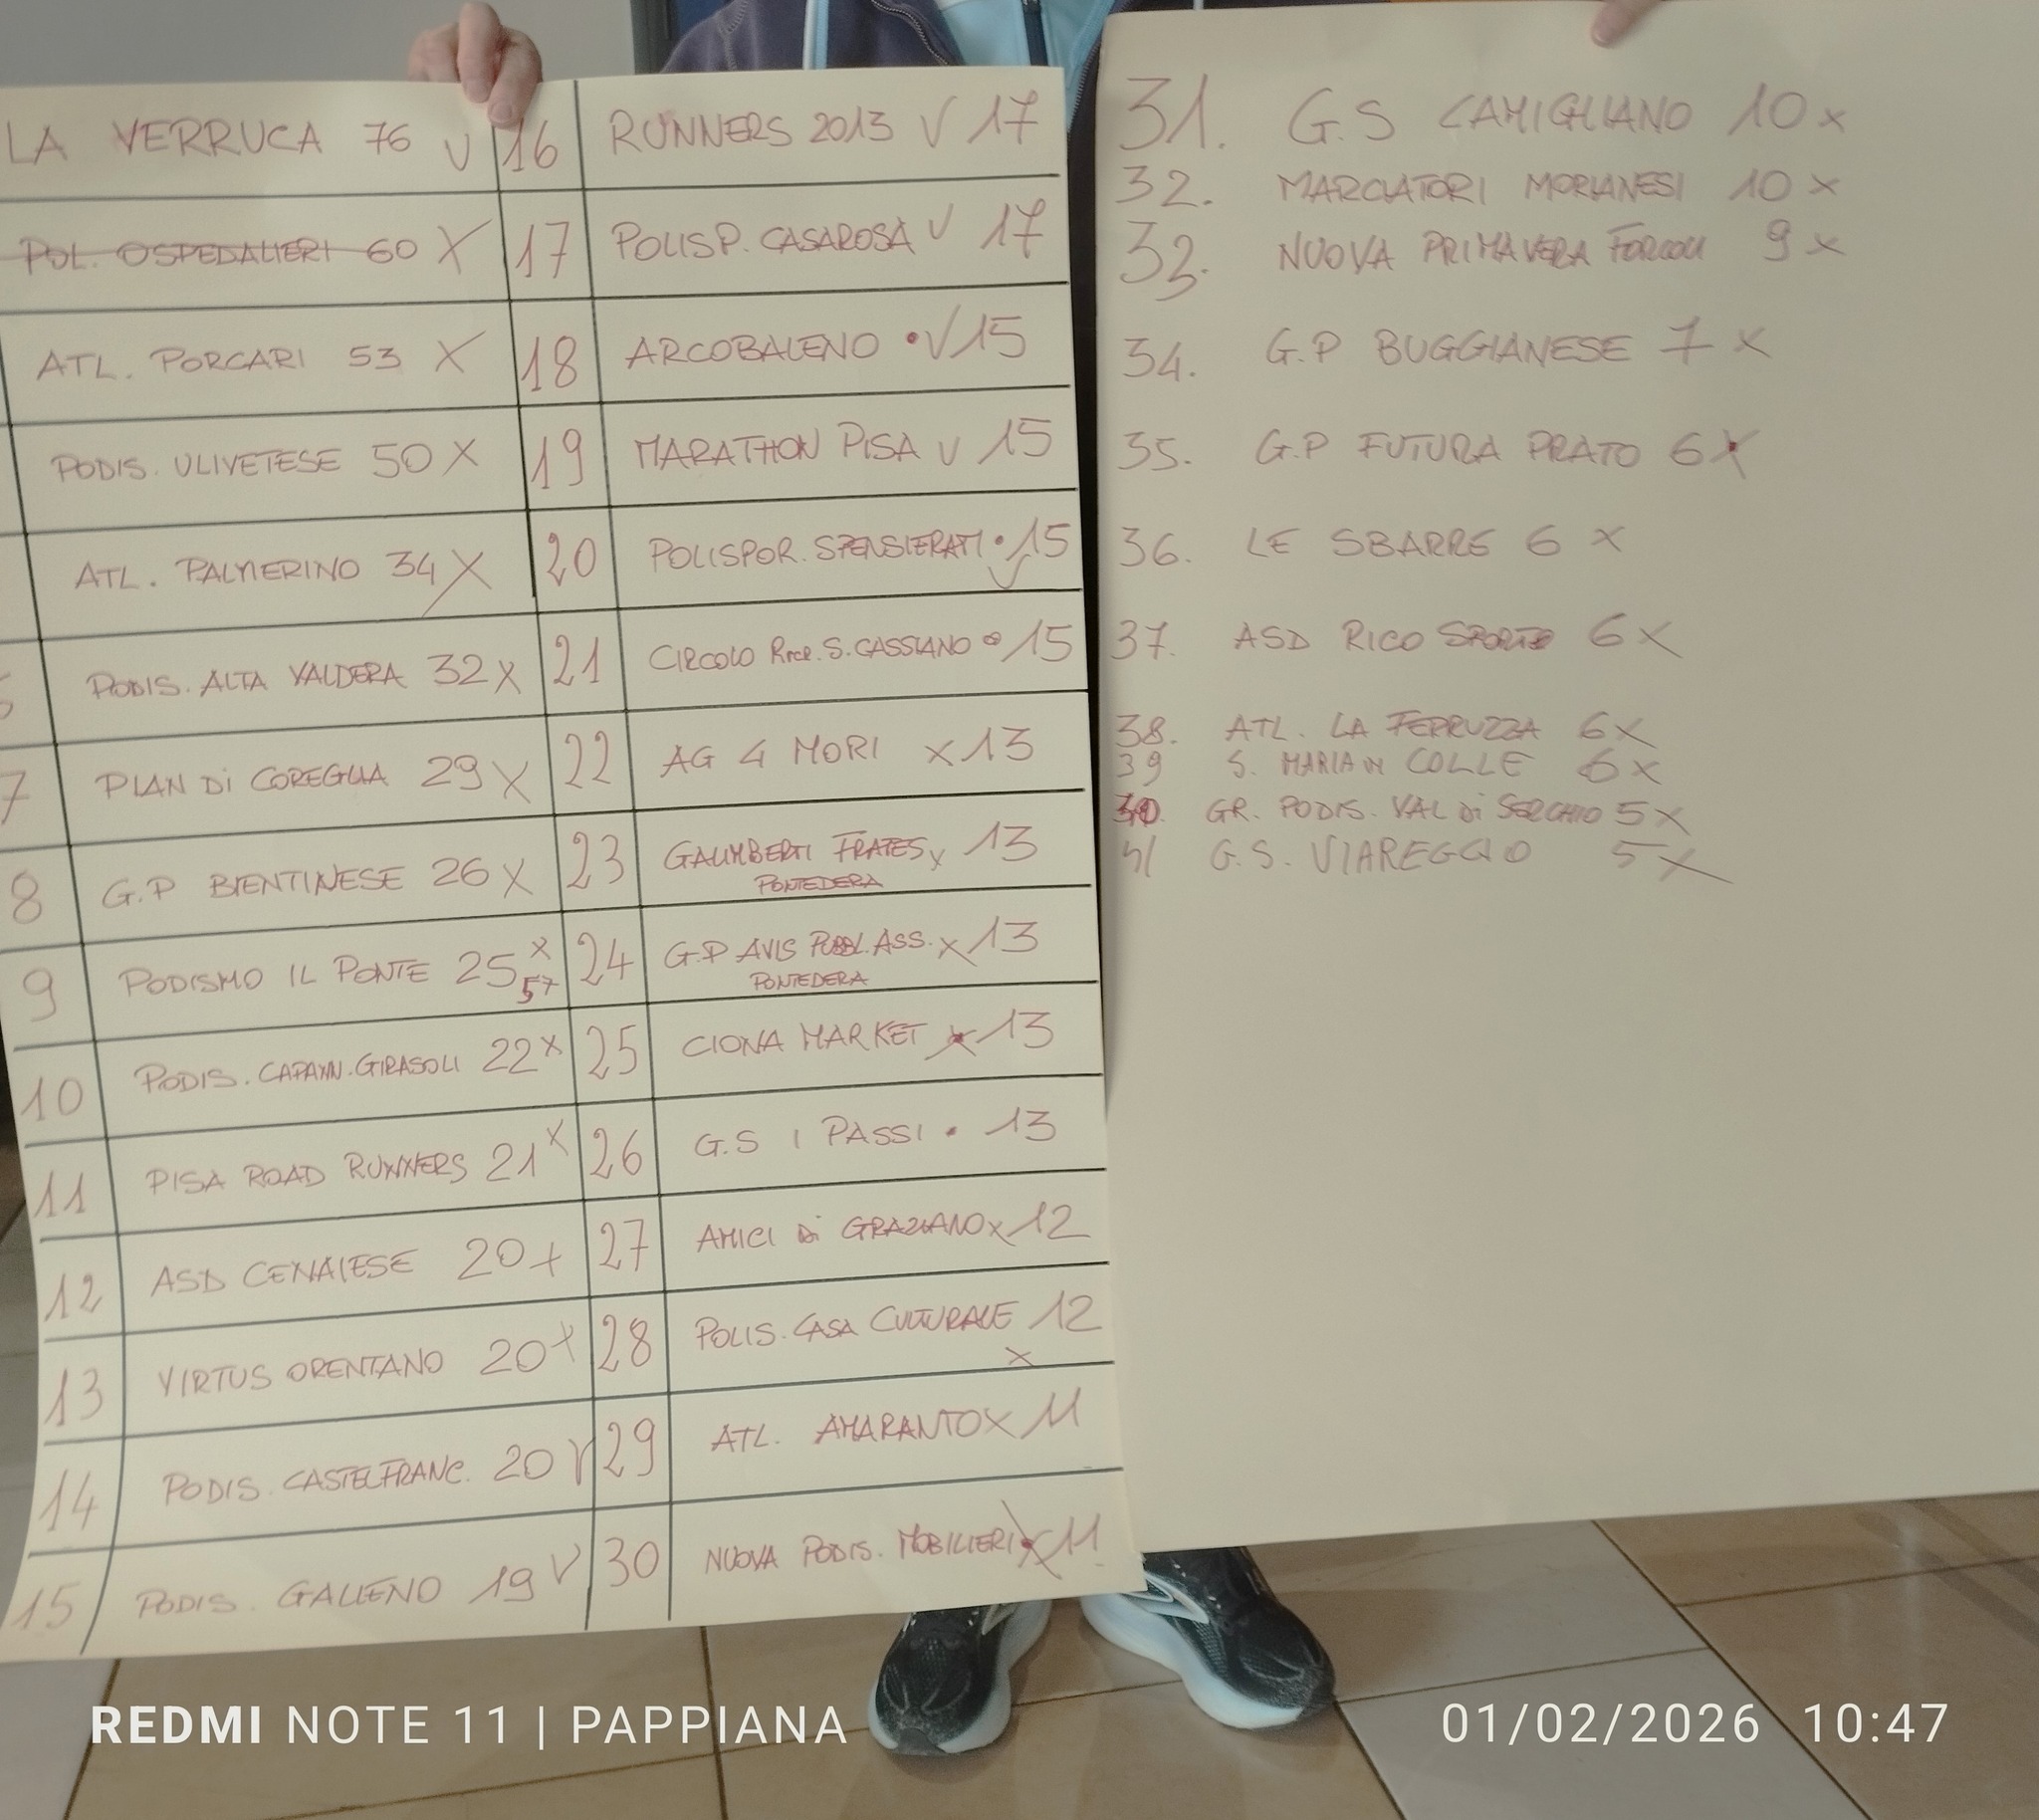 LA VERRUCA 76 V
POL. OSPEDALIERI 60 X
ATL. PORCARI 53 X
PODIS. ULIVETESE 50 X
ATL. PALMERINO 34 X
PODIS. ALTA VALDERA 32 X
7 PIAN Di COREGLIA 29 X
8 G.P BIENTINESE 26 X
9 PODISMO IL PONTE 25 X 57
10 PODIS. CAPANN. GIRASOLI 22 X
11 PISA ROAD RUNNERS 21 X
12 ASD CENAIESE 20 +
13 VIRTUS ORENTANO 20 X
14 PODIS. CASTELFRANC. 20 V
15 PODIS. GALLENO 19 V
16 RUNNERS 2013 V 17
17 POLISP. CASAROSA V 17
18 ARCOBALENO • V 15
19 MARATHON PISA V 15
20 POLISPOR. SPENSIERATI • V 15
21 CIRCOLO Rice. S. CASSIANO • 15
22 AG 4 MORI X 13
23 GALIMBERTI FRATES X 13
PONTEDERA
24 G.P AVIS PUBBL. ASS. X 13
PONTEDERA
25 CIONA MARKET X 13
26 G.S I PASSI • 13
27 AMICI Di GRAZIANO X 12
28 POLIS. CASA CULTURALE 12
X
29 ATL. AMARANTO X 11
30 NUOVA PODIS. MOBILIERI X 11
31. G.S CAMIGLIANO 10 X
32. MARCIATORI MORIANESI 10 X
33. NUOVA PRIMAVERA FORCOLI 9 X
34. G.P BUGGIANESE 7 X
35. G.P FUTURA PRATO 6 X
36. LE SBARRE 6 X
37. ASD RICO SPORT 6 X
38. ATL. LA FERRUZZA 6 X
39 S. MARIA IN COLLE 6 X
40. GR. PODIS. VAL Di SERCHIO 5 X
41 G.S. VIAREGGIO 5 X
REDMI NOTE 11 | PAPPIANA
01/02/2026 10:47